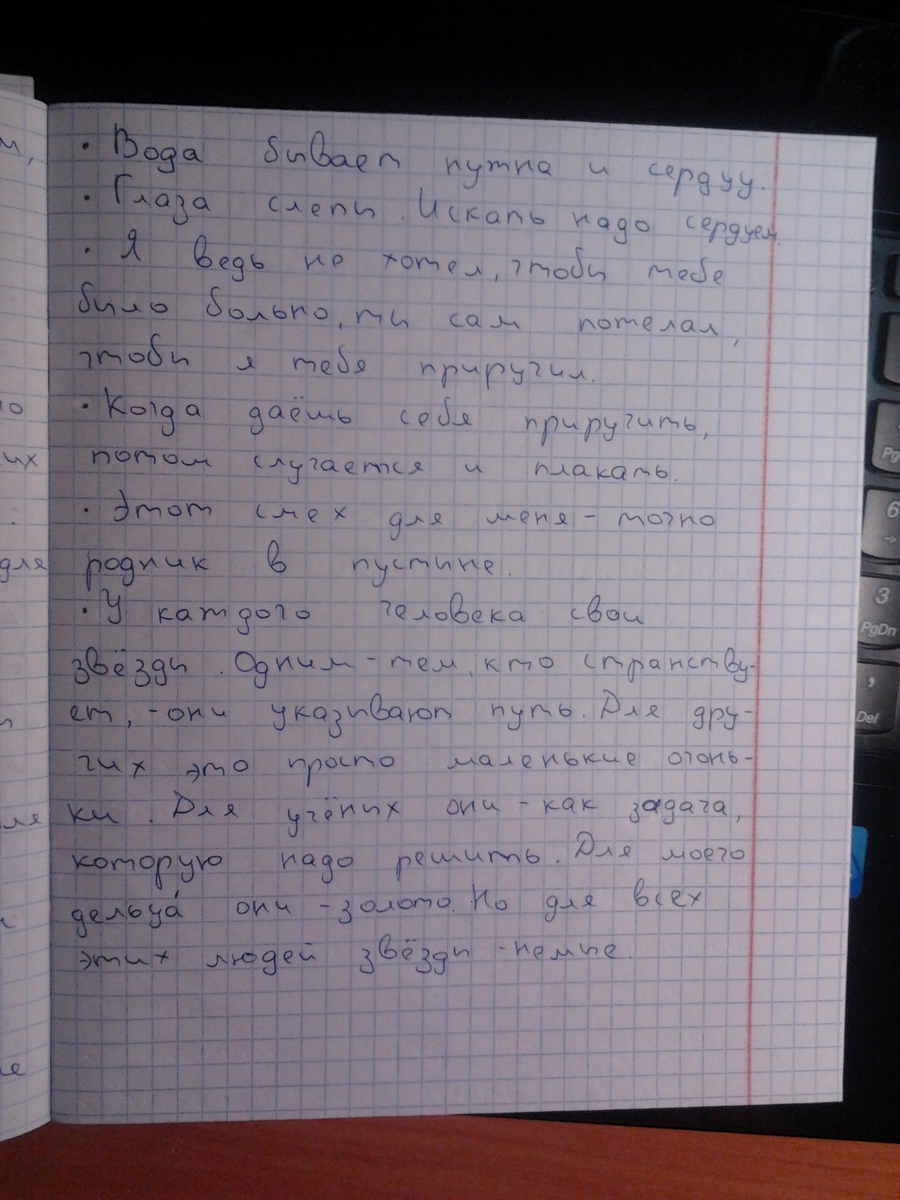 м,
· Вода бывает нужна и сердцу.
· Глаза слепы. Искать надо сердцем.
· Я ведь не хотел, чтобы тебе
было больно, ты сам пожелал,
чтобы я тебя приручил.
ю
· Когда даёшь себя приручить,
их
потом случается и плакать.
· Этот смех для меня - точно
для
родник в пустыне.
· У каждого человека свои
звёзды. Одним - тем, кто странству-
ет, - они указывают путь. Для дру-
гих это просто маленькие огонь-
ля
ки. Для учёных они - как задача,
которую надо решить. Для моего
дельца́ они - золото. Но для всех
этих людей звёзды - немые.
Pg
6
3
PgDn
,
Del